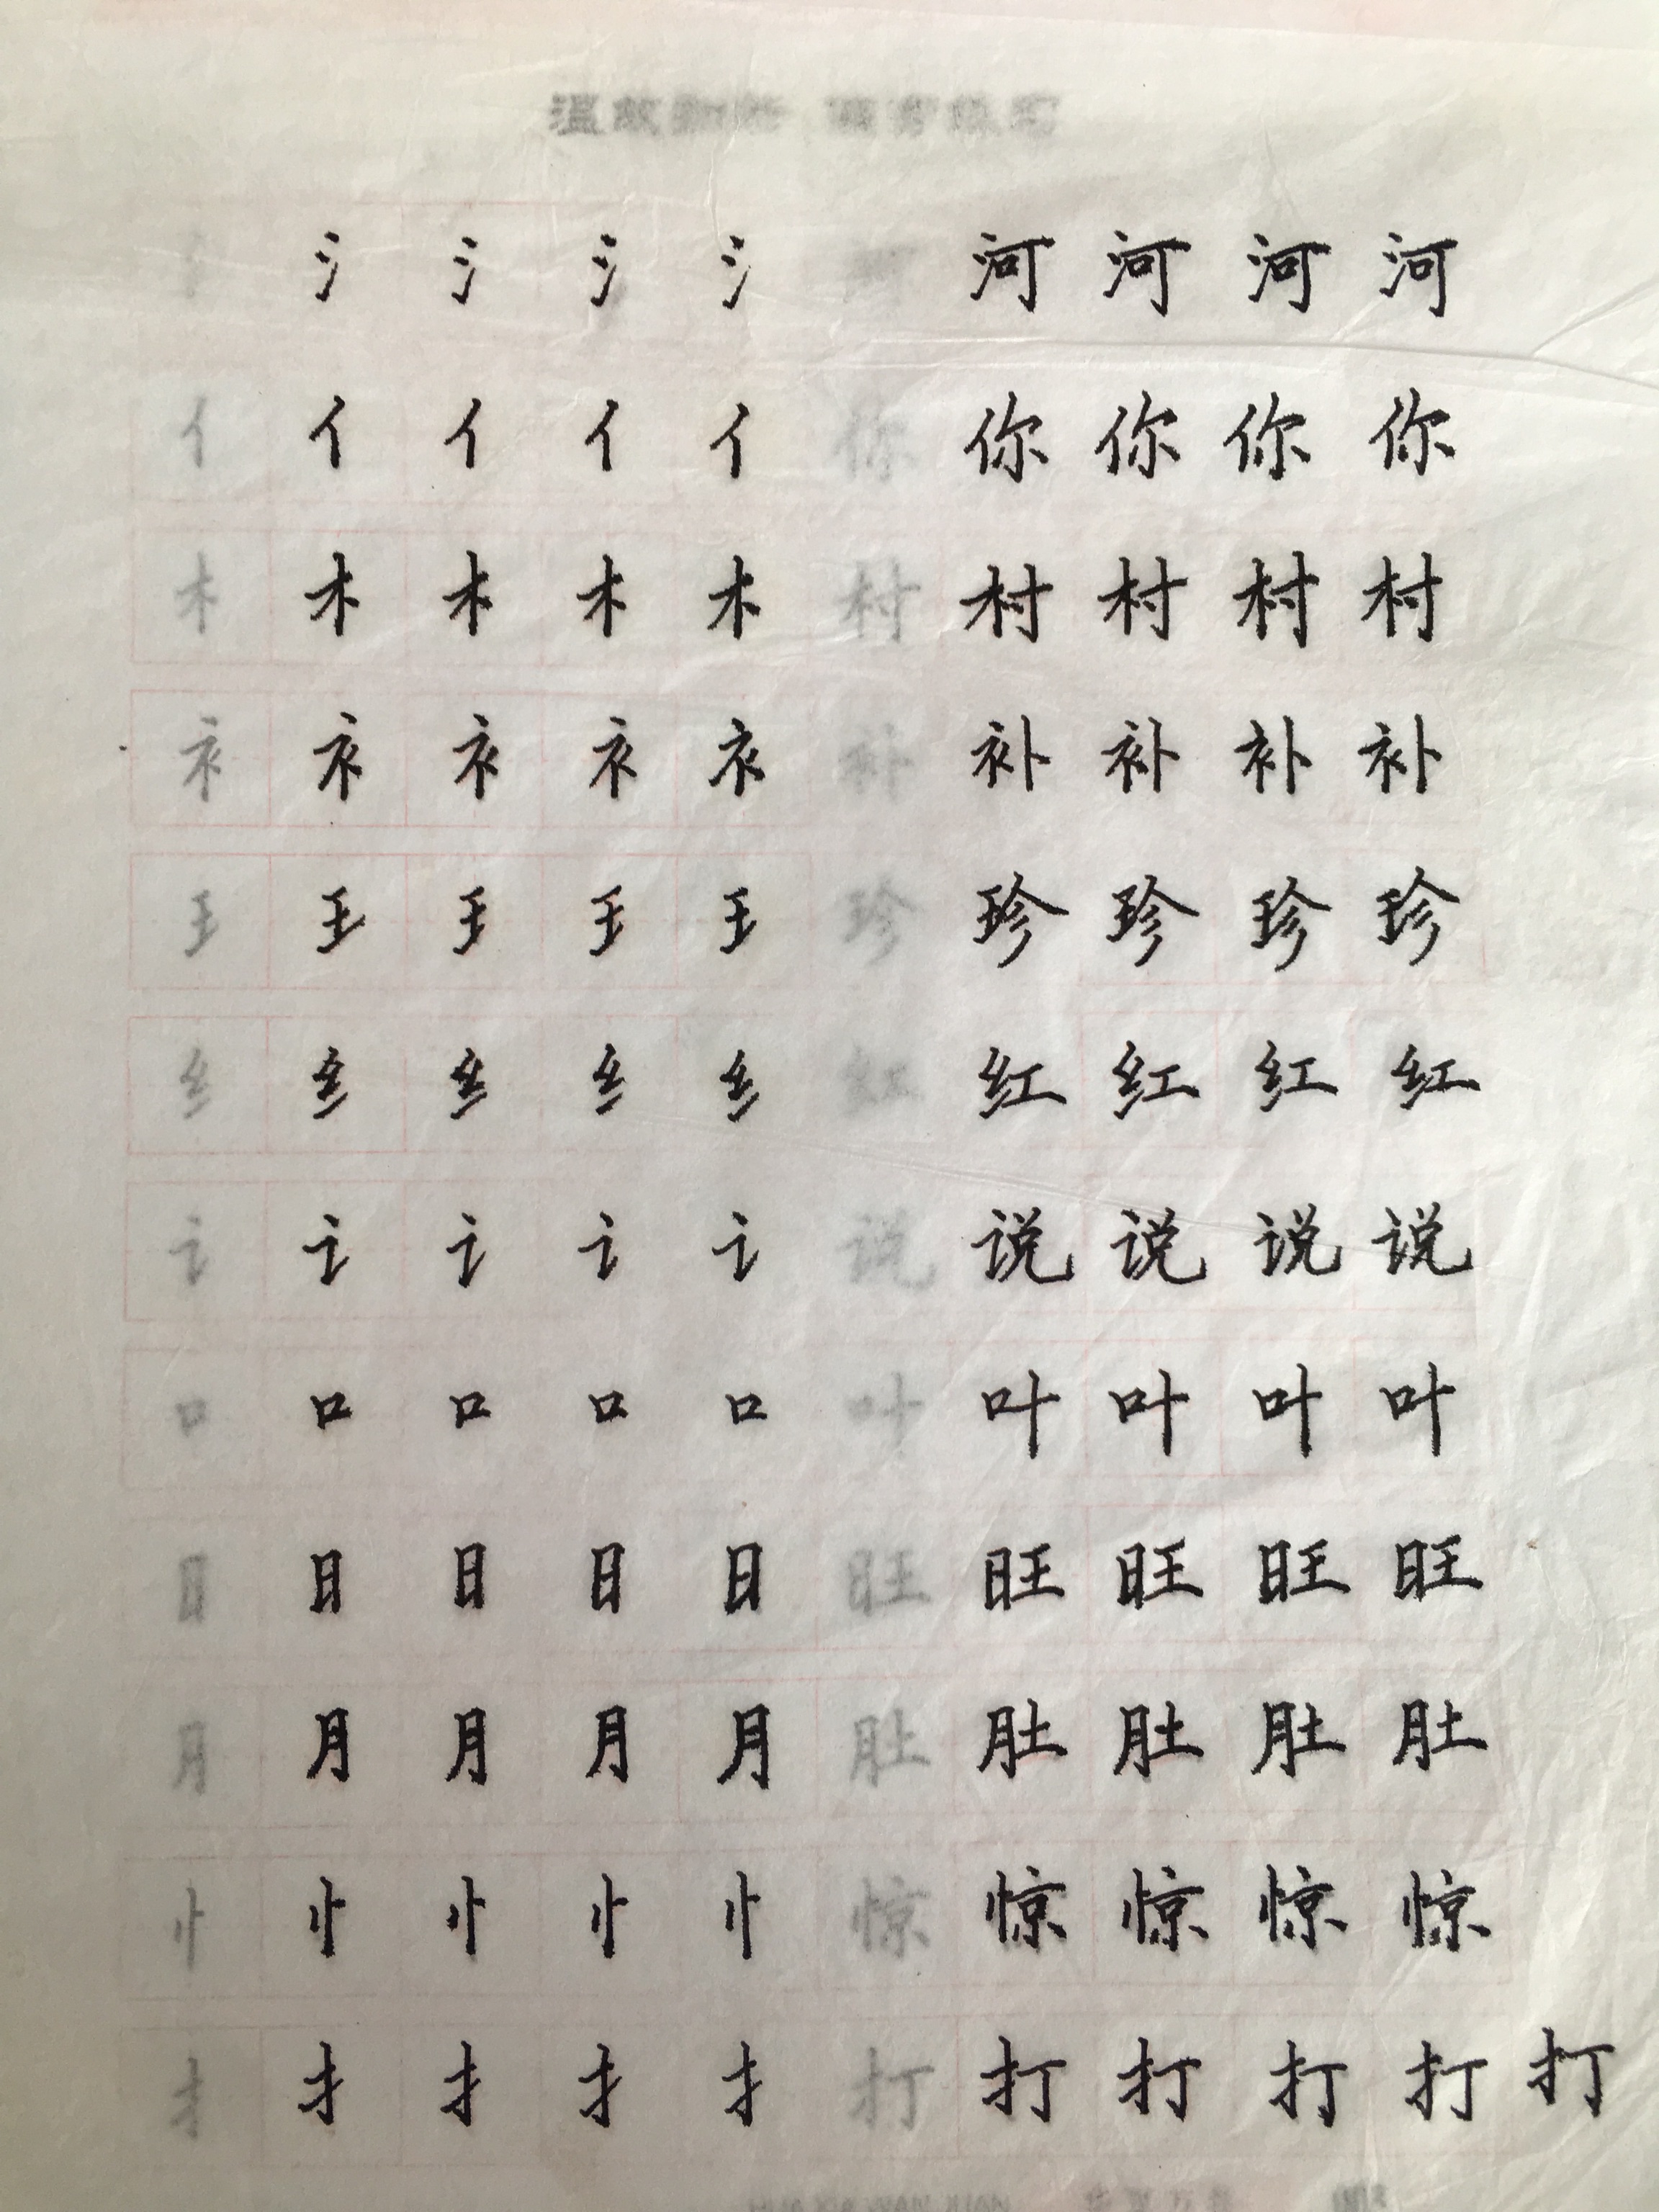 温故知新 偏旁练习
氵 氵 氵 氵 河 河 河 河
亻 亻 亻 亻 亻 你 你 你 你 你
木 木 木 木 木 村 村 村 村 村
衤 衤 衤 衤 衤 补 补 补 补 补
王 王 王 王 王 珍 珍 珍 珍 珍
纟 纟 纟 纟 纟 红 红 红 红 红
讠 讠 讠 讠 讠 说 说 说 说 说
口 口 口 口 口 叶 叶 叶 叶 叶
日 日 日 日 日 旺 旺 旺 旺 旺
月 月 月 月 月 肚 肚 肚 肚 肚
忄 忄 忄 忄 忄 惊 惊 惊 惊 惊
扌 扌 扌 扌 扌 打 打 打 打 打 打
HUA XIA WAN JUAN